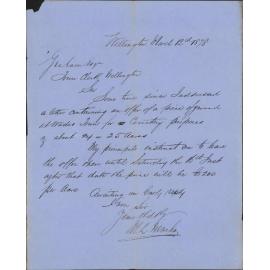 Wellington March 12th 1878
Graham Esq
Town Clerk, Wellington
Sir
Some time since I addressed
a letter containing an offer of a piece of ground
at Wades Town for a Cemetery purposes
of about 24 - 25 acres
My principals instruct me to leave
the offer open until Saturday the 16th Inst
after that date the price will be £200
per Acre
Awaiting an Early reply
I am Sir
Yours Obdtly